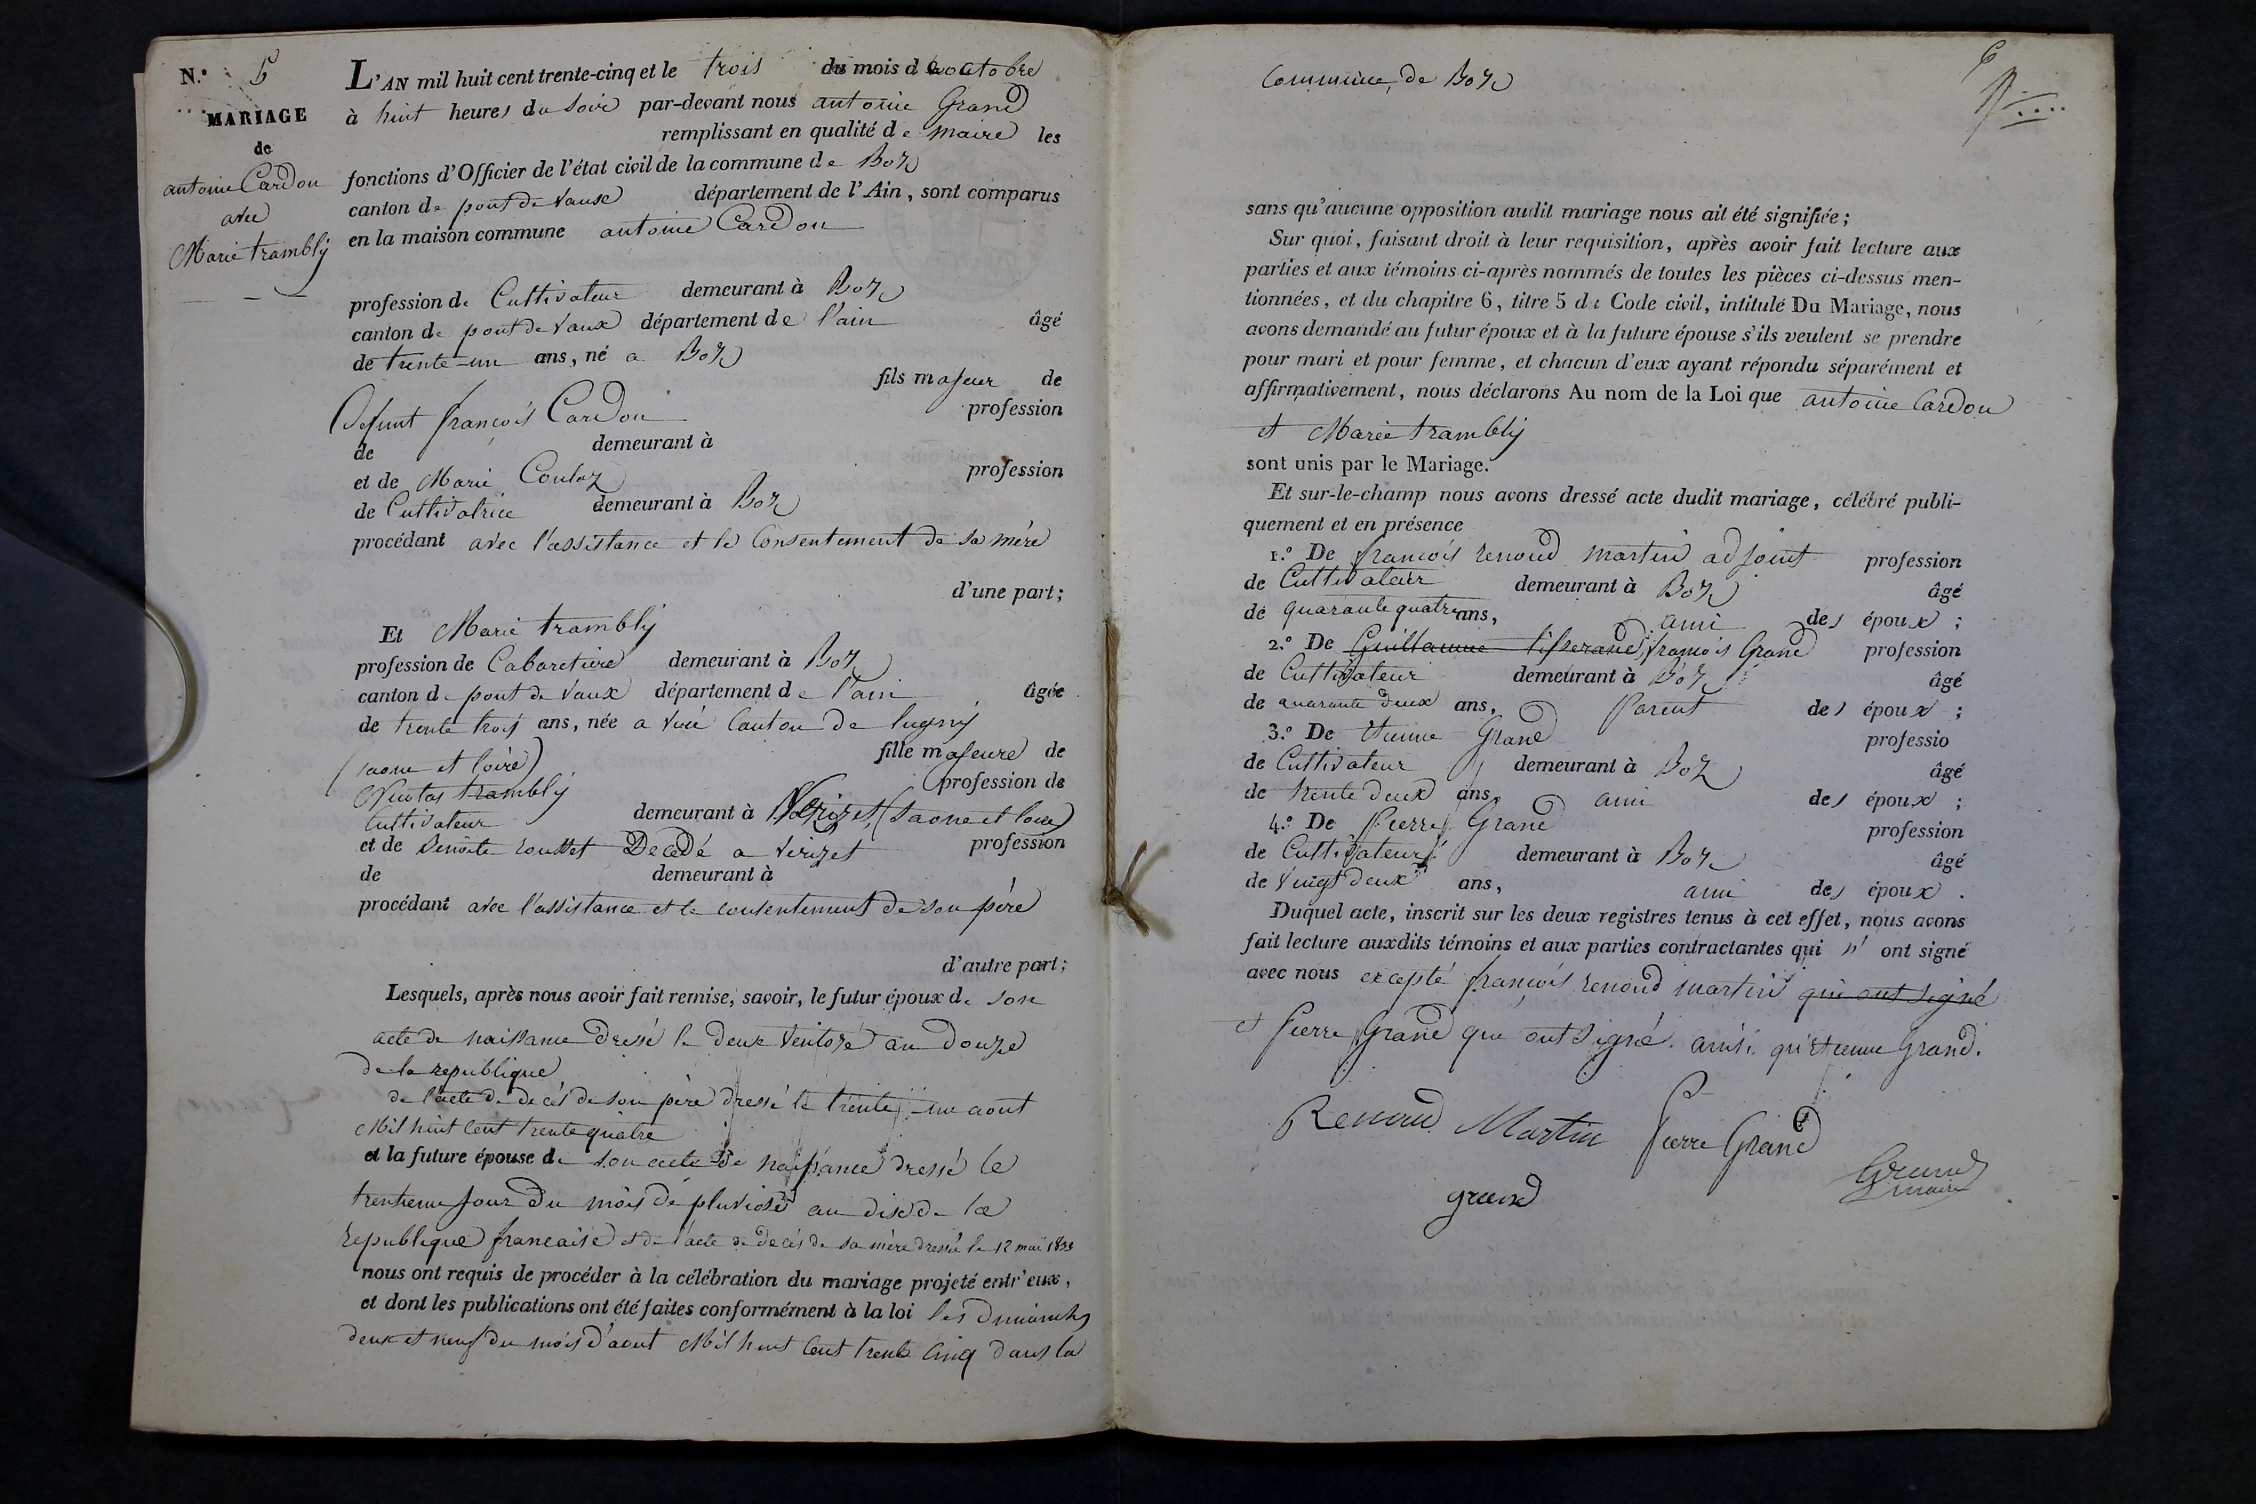 N.° 5
MARIAGE
de
antoine Cardon
avec
Marie trambly
L'AN mil huit cent trente-cinq et le trois du mois d'octobre
à huit heures du soir par-devant nous antoine Grand
remplissant en qualité de maire les
fonctions d'Officier de l'état civil de la commune de Boz
canton de pont de vaux département de l'Ain, sont comparus
en la maison commune antoine Cardon
profession de Cultivateur demeurant à Boz
canton de pont de vaux département de l'ain âgé
de trente-un ans, né a Boz
fils majeur de
Defunt françois Cardon profession
de demeurant à
et de Marie Coulaz profession
de Cultivatrice demeurant à Boz
procédant avec l'assistance et le Consentement de sa mère
d'une part;
Et Marie trambly
profession de Cabaretière demeurant à Boz
canton de pont de vaux département de l'ain âgée
de trente trois ans, née a viré Canton de lugny
(saone et loire) fille majeure de
Nicolas trambly profession de
Cultivateur demeurant à Verizet (saone et loire)
et de Benoite rousset Decedé a verizet profession
de demeurant à
procédant avec l'assistance et le consentement de son père
d'autre part;
Lesquels, après nous avoir fait remise, savoir, le futur époux de son
acte de naissance dressé le deux ventose an douze
de la republique
de l'acte de decés de son père dressé le trente-un aout
Mil huit cent trente quatre
et la future épouse de son acte de naissance dressé le
trentieme jour du mois de pluviose an dix de la
republique francaise et de l'acte de decés de sa mère dressé le 12 mai 1833
nous ont requis de procéder à la célébration du mariage projeté entr'eux,
et dont les publications ont été faites conformément à la loi les dimanches
deux et neuf du mois d'aout Mil huit Cent trente Cinq dans la
Commune de Boz
6
sans qu'aucune opposition audit mariage nous ait été signifiée;
Sur quoi, faisant droit à leur requisition, après avoir fait lecture aux
parties et aux témoins ci-après nommés de toutes les pièces ci-dessus men-
tionnées, et du chapitre 6, titre 5 du Code civil, intitulé Du Mariage, nous
avons demandé au futur époux et à la future épouse s'ils veulent se prendre
pour mari et pour femme, et chacun d'eux ayant répondu séparément et
affirmativement, nous déclarons Au nom de la Loi que antoine Cardon
et Marie trambly
sont unis par le Mariage.
Et sur-le-champ nous avons dressé acte dudit mariage, célébré publi-
quement et en présence
1.° De françois renoud martin adjoint profession
de Cultivateur demeurant à Boz âgé
de quarante quatre ans, ami des époux;
2.° De Guillaume tisserand françois Grand profession
de Cultivateur demeurant à Boz âgé
de quarante deux ans, Parent des époux;
3.° De Etienne Grand professio
de Cultivateur demeurant à Boz âgé
de trente deux ans, ami des époux;
4.° De Pierre Grand profession
de Cultivateur demeurant à Boz âgé
de vingt deux ans, ami des époux.
Duquel acte, inscrit sur les deux registres tenus à cet effet, nous avons
fait lecture auxdits témoins et aux parties contractantes qui n'ont signé
avec nous excepté françois renoud martin qui ont signé
et Pierre Grand qui ont signé. ainsi qu'etienne Grand.
Renoud Martin Pierre Grand
Grand
maire
grand